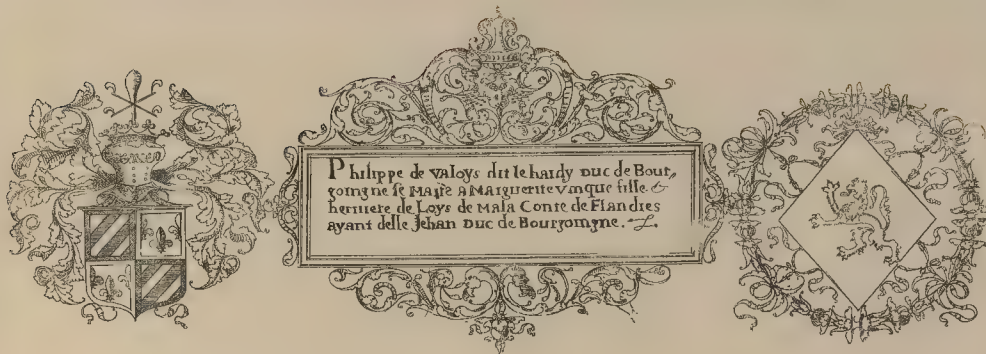 Philippe de valoys dit le hardy duc de Bour,
gongne se marie a Marguerite vnique fille &
heritiere de Loys de Mala Conte de Flandres
ayant delle Jehan Duc de Bourgongne.